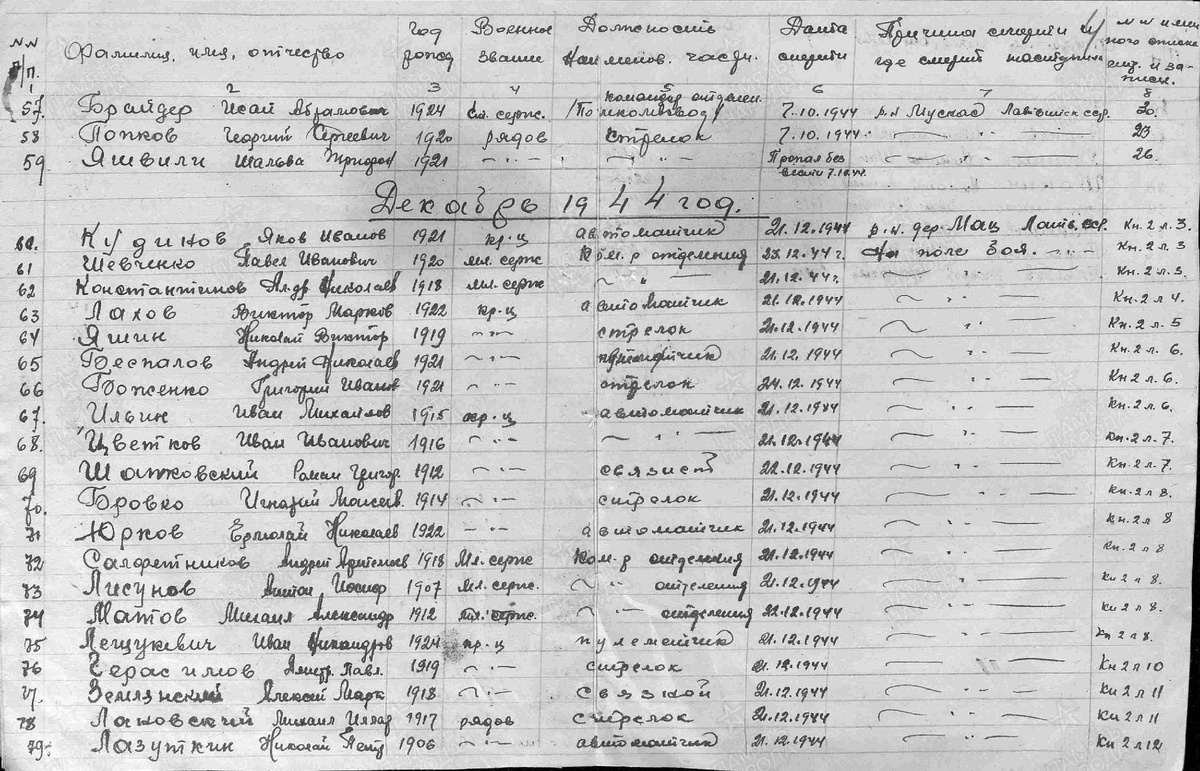 №№ п/п. Фамилия, имя, отчество Год рожд Военное звание Должность Наименов. части. Дата смерти Причина смерти и где смерть наступила
1 2 3 4 5 6 7 8
57. Брайдер Исай Абрамович 1924 Ст. серж. командир отделен. /Помкомвзвод/ 7.10.1944 р.н Мускас Латвийск сср. 20.
58 Попков Георгий Сергеевич 1920 рядов стрелок 7.10.1944 — " — 23
59 Яшвили Шальва 1921 — " — — " — Пропал без вести 7.10.44. — " — 26.
Декабрь 1944 год.
60. Кудинов Яков Иванов 1921 кр.ц автоматчик 21.12.1944 р.н. дер. Мац Латв. сср. Кн 2 л 3.
61 Шевченко Павел Иванович 1920 мл. серж Ком.р отделения 23.12.44 г. На поле боя. Кн. 2 л 3
62 Константинов Ал.др Николаев 1918 мл. серж — " — 21.12.44 г. — " — Кн. 2 л. 3.
63 Лахов Виктор Марков 1922 кр.ц автоматчик 21.12.1944 — " — Кн. 2 л 4.
64 Яшин Николай Виктор 1919 — " — стрелок 21.12.1944 — " — Кн. 2 л. 5
65 Беспалов Андрей Николаев 1921 — " — 21.12.1944 — " — Кн. 2 л. 6.
66 Боженко Григорий Иванов 1921 — " — стрелок 24.12.1944 — " — Кн. 2 л. 6.
67. Ильин Иван Михайлов 1915 кр.ц автоматчик 21.12.1944 — " — Кн. 2 л. 6.
68. Цветков Иван Иванович 1916 — " — — " — 21.12.1944 — " — Кн. 2 л. 7.
69 Шатковский Роман Григор 1912 — " — связист 22.12.1944 — " — Кн. 2 л. 7.
70. Бровко Игнатий Моисеев. 1914 — " — стрелок 21.12.1944 — " — Кн. 2 л 8.
71 Юрков Ермолай Николаев 1922 — " — автоматчик 21.12.1944 — " — Кн. 2 л 8
72 Салфетников Андрей Артемьев 1918 Мл. серж Ком.р отделения 21.12.1944 — " — Кн. 2 л 8
73 Лисунов Антон Иосиф 1907 Мл. серж. — " — отделения 21.12.1944 — " — Кн 2 л 8.
74 Матов Михаил Александр 1912 мл. серж. — " — отделения 22.12.1944 — " — Кн 2 л 8.
75 Лещукевич Иван Никандров 1924 кр.ц пулеметчик 21.12.1944 — " — Кн 2 л 8.
76 Герасимов Дмитр. Павл. 1919 — " — стрелок 21.12.1944 — " — Кн 2 л 10
77. Землянский Алексей Марк 1918 — " — связной 21.12.1944 — " — Кн 2 л 11
78 Лановский Михаил Иллар 1917 рядов стрелок 21.12.1944 — " — Кн 2 л 11
79. Лазуткин Николай Петр 1906 — " — автоматчик 21.12.1944 — " — Кн 2 л 12